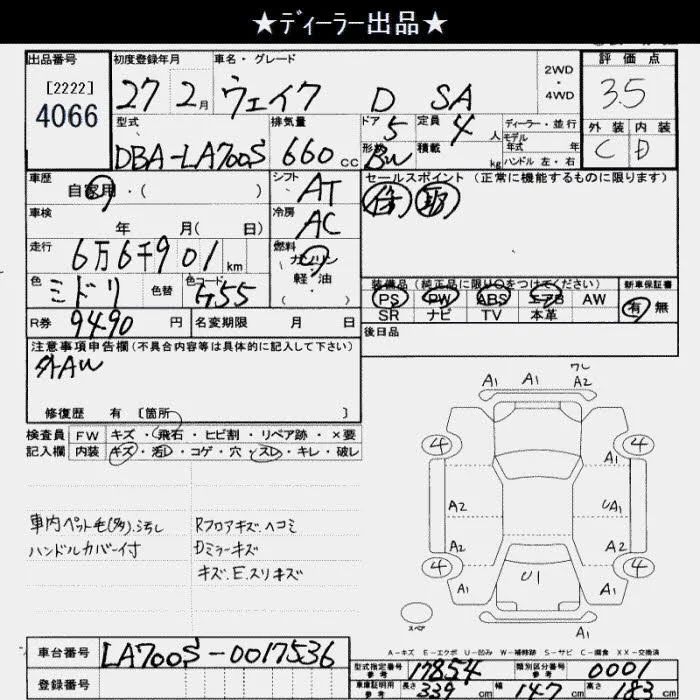 ★ディーラー出品★
出品番号 初度登録年月 車名・グレード 評価点
[2222]
4066
27 2月 ウェイク D SA 2WD・4WD 3.5
型式 排気量 ドア 定員 ディーラー・並行 外装 内装
DBA-LA700S 660cc 5 4人 モデル年式 年 C D
形状 BW 積載 kg ハンドル 左・右
車歴 自家用・( ) シフト AT セールスポイント (正常に機能するものに限ります)
車検 年 月( 日) 冷房 AC
走行 6万6千901km 燃料 ガソリン 軽・油 ・( )
色 ミドリ 色替 色コード G55 装備品(純正品に限り○をつけてください) 新車保証書
PS PW ABS エアB AW 有・無
R券 9490円 名変期限 月 日 SR ナビ TV 本革
注意事項申告欄(不具合内容等は具体的に記入して下さい) 後日品
外AW
修復歴 有 〔箇所 〕
検査員 FW キズ・飛石・ヒビ割・リペア跡・×要
記入欄 内装 キズ・汚・コゲ・穴・スレ・キレ・破レ
A1 A1 ワレ A2
4 4
A1 A1
A2 UA1
A2 A2
4 4
A1 U1 A1
A1
スペア
車内ペット毛(多).汚れ Rフロアキズ.ヘコミ
ハンドルカバー付 Dミラーキズ
キズ.E.スリキズ
A-キズ E-エクボ U-凹み W-補修跡 S-サビ C-腐食 XX-交換済
車台番号 LA700S-0017536 型式指定番号 参考 17854 類別区分番号 参考 0001
登録番号 車庫証明用 参考 長さ 339cm 幅 147cm 高さ 183cm